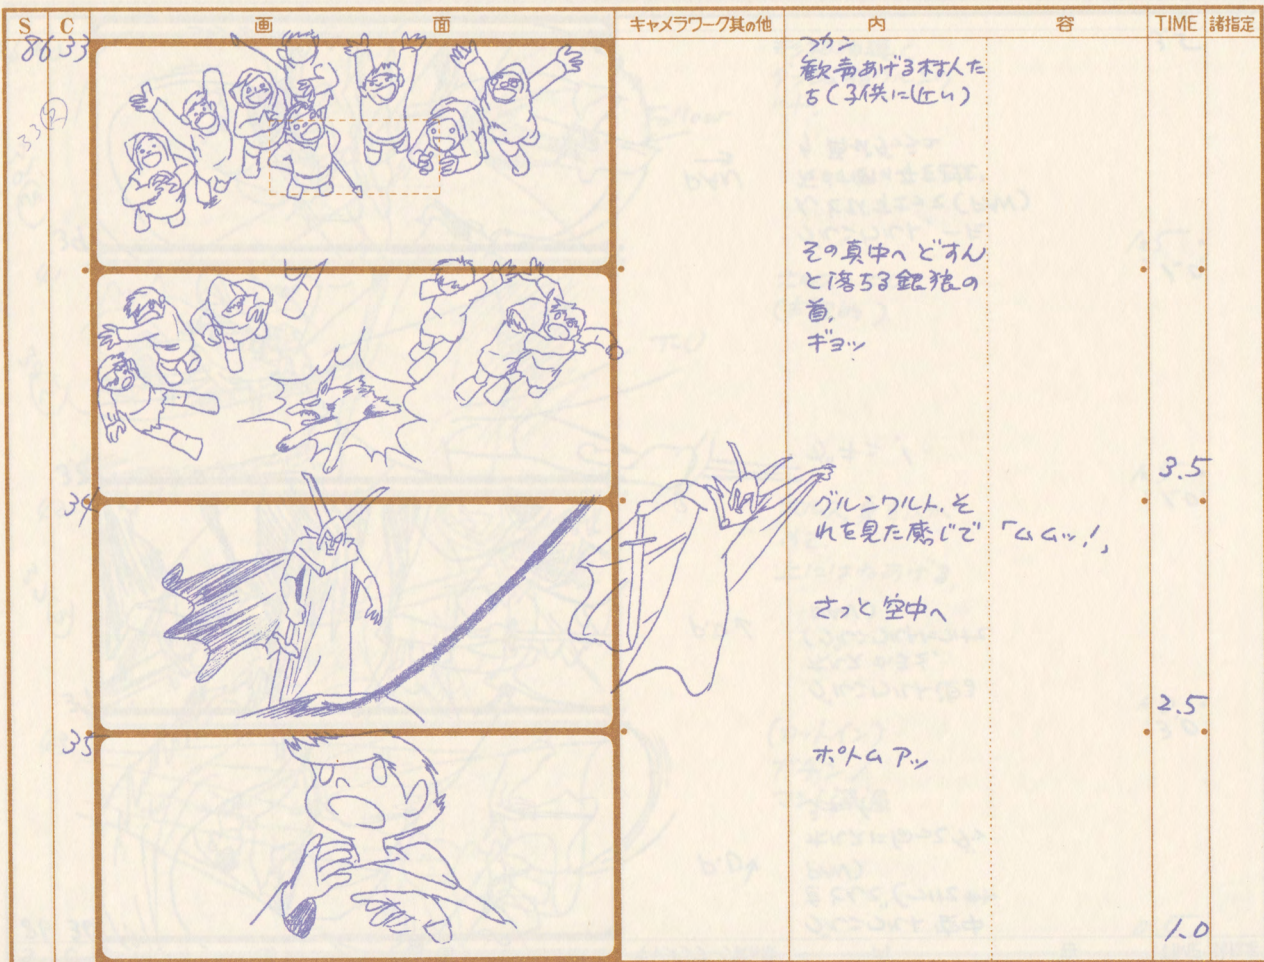 S C 画 面 キャメラワーク其の他 内 容 TIME 諸指定
86 33
フカン
歓声あげる村人た
ち(子供に近い)
その真中へどすん
と落ちる銀狼の
首、
ギョッ
3.5
34
グルンワルト、そ
れを見た感じで 「ムムッ!」
さっと空中へ
2.5
35
ポトム アッ
1.0